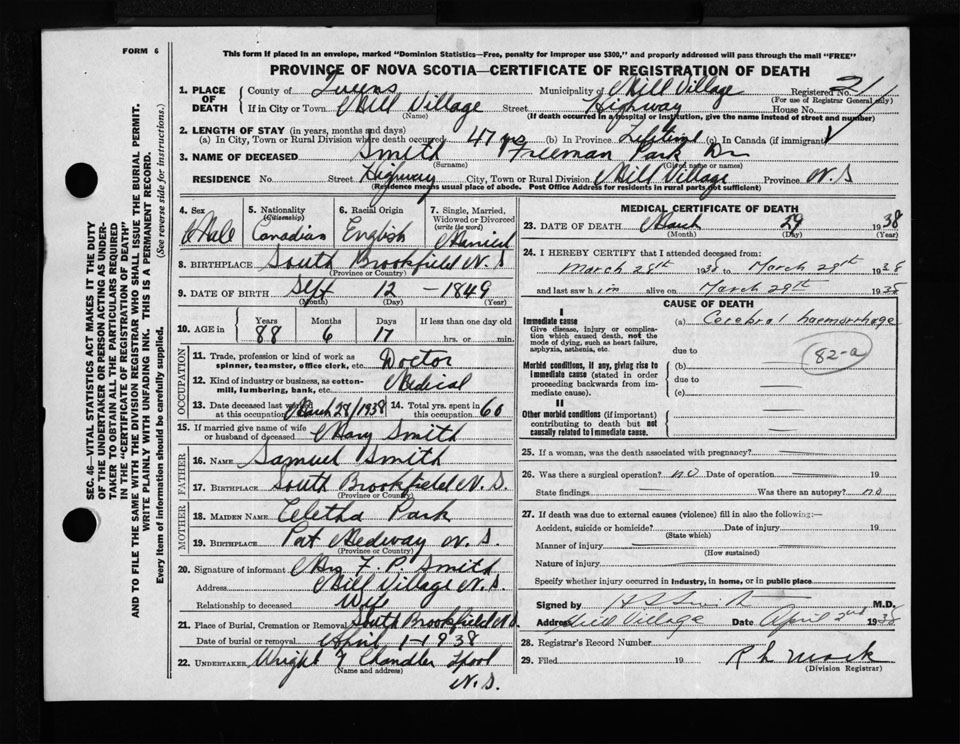 FORM 6
This form if placed in an envelope, marked "Dominion Statistics—Free, penalty for improper use $300," and properly addressed will pass through the mail "FREE"
PROVINCE OF NOVA SCOTIA—CERTIFICATE OF REGISTRATION OF DEATH
1. PLACE OF DEATH County of Queens Municipality of Mill Village Registered No. 21
(For use of Registrar General only)
If in City or Town Mill Village Street Highway House No.
(Name) (If death occurred in a hospital or institution, give the name instead of street and number)
2. LENGTH OF STAY (in years, months and days)
(a) In City, Town or Rural Division where death occurred 47 yrs (b) In Province Lifetime (c) In Canada (if immigrant)
3. NAME OF DECEASED Smith Freeman Park Dr
(Surname) (Given name or names)
RESIDENCE No. Street Highway City, Town or Rural Division Mill Village Province N.S
(Residence means usual place of abode. Post Office Address for residents in rural parts not sufficient)
4. Sex Male
5. Nationality (Citizenship) Canadian
6. Racial Origin English
7. Single, Married, Widowed or Divorced (write the word) Married
8. BIRTHPLACE South Brookfield N.S
(Province or Country)
9. DATE OF BIRTH Sept 12 - 1849
(Month) (Day) (Year)
10. AGE in Years 88 Months 6 Days 17 If less than one day old hrs. or min.
OCCUPATION
11. Trade, profession or kind of work as spinner, teamster, office clerk, etc. Doctor
12. Kind of industry or business, as cotton-mill, lumbering, bank, etc. Medical
13. Date deceased last worked at this occupation March 28/1938 14. Total yrs. spent in this occupation 60
15. If married give name of wife or husband of deceased Mary Smith
FATHER
16. NAME Samuel Smith
17. BIRTHPLACE South Brookfield N.S.
(Province or Country)
MOTHER
18. MAIDEN NAME Eletha Park
19. BIRTHPLACE Port Medway N.S.
(Province or Country)
20. Signature of informant Mrs F. P. Smith
Address Mill Village N.S.
Relationship to deceased Wife
21. Place of Burial, Cremation or Removal South Brookfield N.S
Date of burial or removal April 1-1938
22. UNDERTAKER Wright & Chandler Lpool
(Name and address) N.S.
MEDICAL CERTIFICATE OF DEATH
23. DATE OF DEATH March 29 1938
(Month) (Day) (Year)
24. I HEREBY CERTIFY that I attended deceased from:
March 28th 1938 to March 29th 1938
and last saw him alive on March 29th 1938
CAUSE OF DEATH
I
Immediate cause (a) Cerebral haemorrhage
Give disease, injury or complication which caused death, not the mode of dying, such as heart failure, asphyxia, asthenia, etc. due to
82-a
Morbid conditions, if any, giving rise to immediate cause (stated in order proceeding backwards from immediate cause). (b)
due to
(c)
II
Other morbid conditions (if important) contributing to death but not causally related to immediate cause.
25. If a woman, was the death associated with pregnancy?
26. Was there a surgical operation? no Date of operation 19
State findings Was there an autopsy? no
27. If death was due to external causes (violence) fill in also the following:—
Accident, suicide or homicide? Date of injury 19
(State which)
Manner of injury
(How sustained)
Nature of injury
Specify whether injury occurred in industry, in home, or in public place
Signed by H S Smith M.D.
Address Mill Village Date April 2nd 1938
28. Registrar's Record Number
29. Filed 19 R L Mack
(Division Registrar)
SEC. 46—VITAL STATISTICS ACT MAKES IT THE DUTY
OF THE UNDERTAKER OR PERSON ACTING AS UNDER-
TAKER TO OBTAIN ALL THE PARTICULARS REQUIRED
IN THE "CERTIFICATE OF REGISTRATION OF DEATH"
AND TO FILE THE SAME WITH THE DIVISION REGISTRAR WHO SHALL ISSUE THE BURIAL PERMIT.
WRITE PLAINLY WITH UNFADING INK. THIS IS A PERMANENT RECORD.
Every item of information should be carefully supplied. (See reverse side for instructions.)